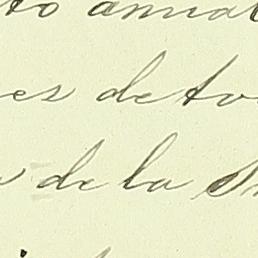 to anual
es de to
de la S